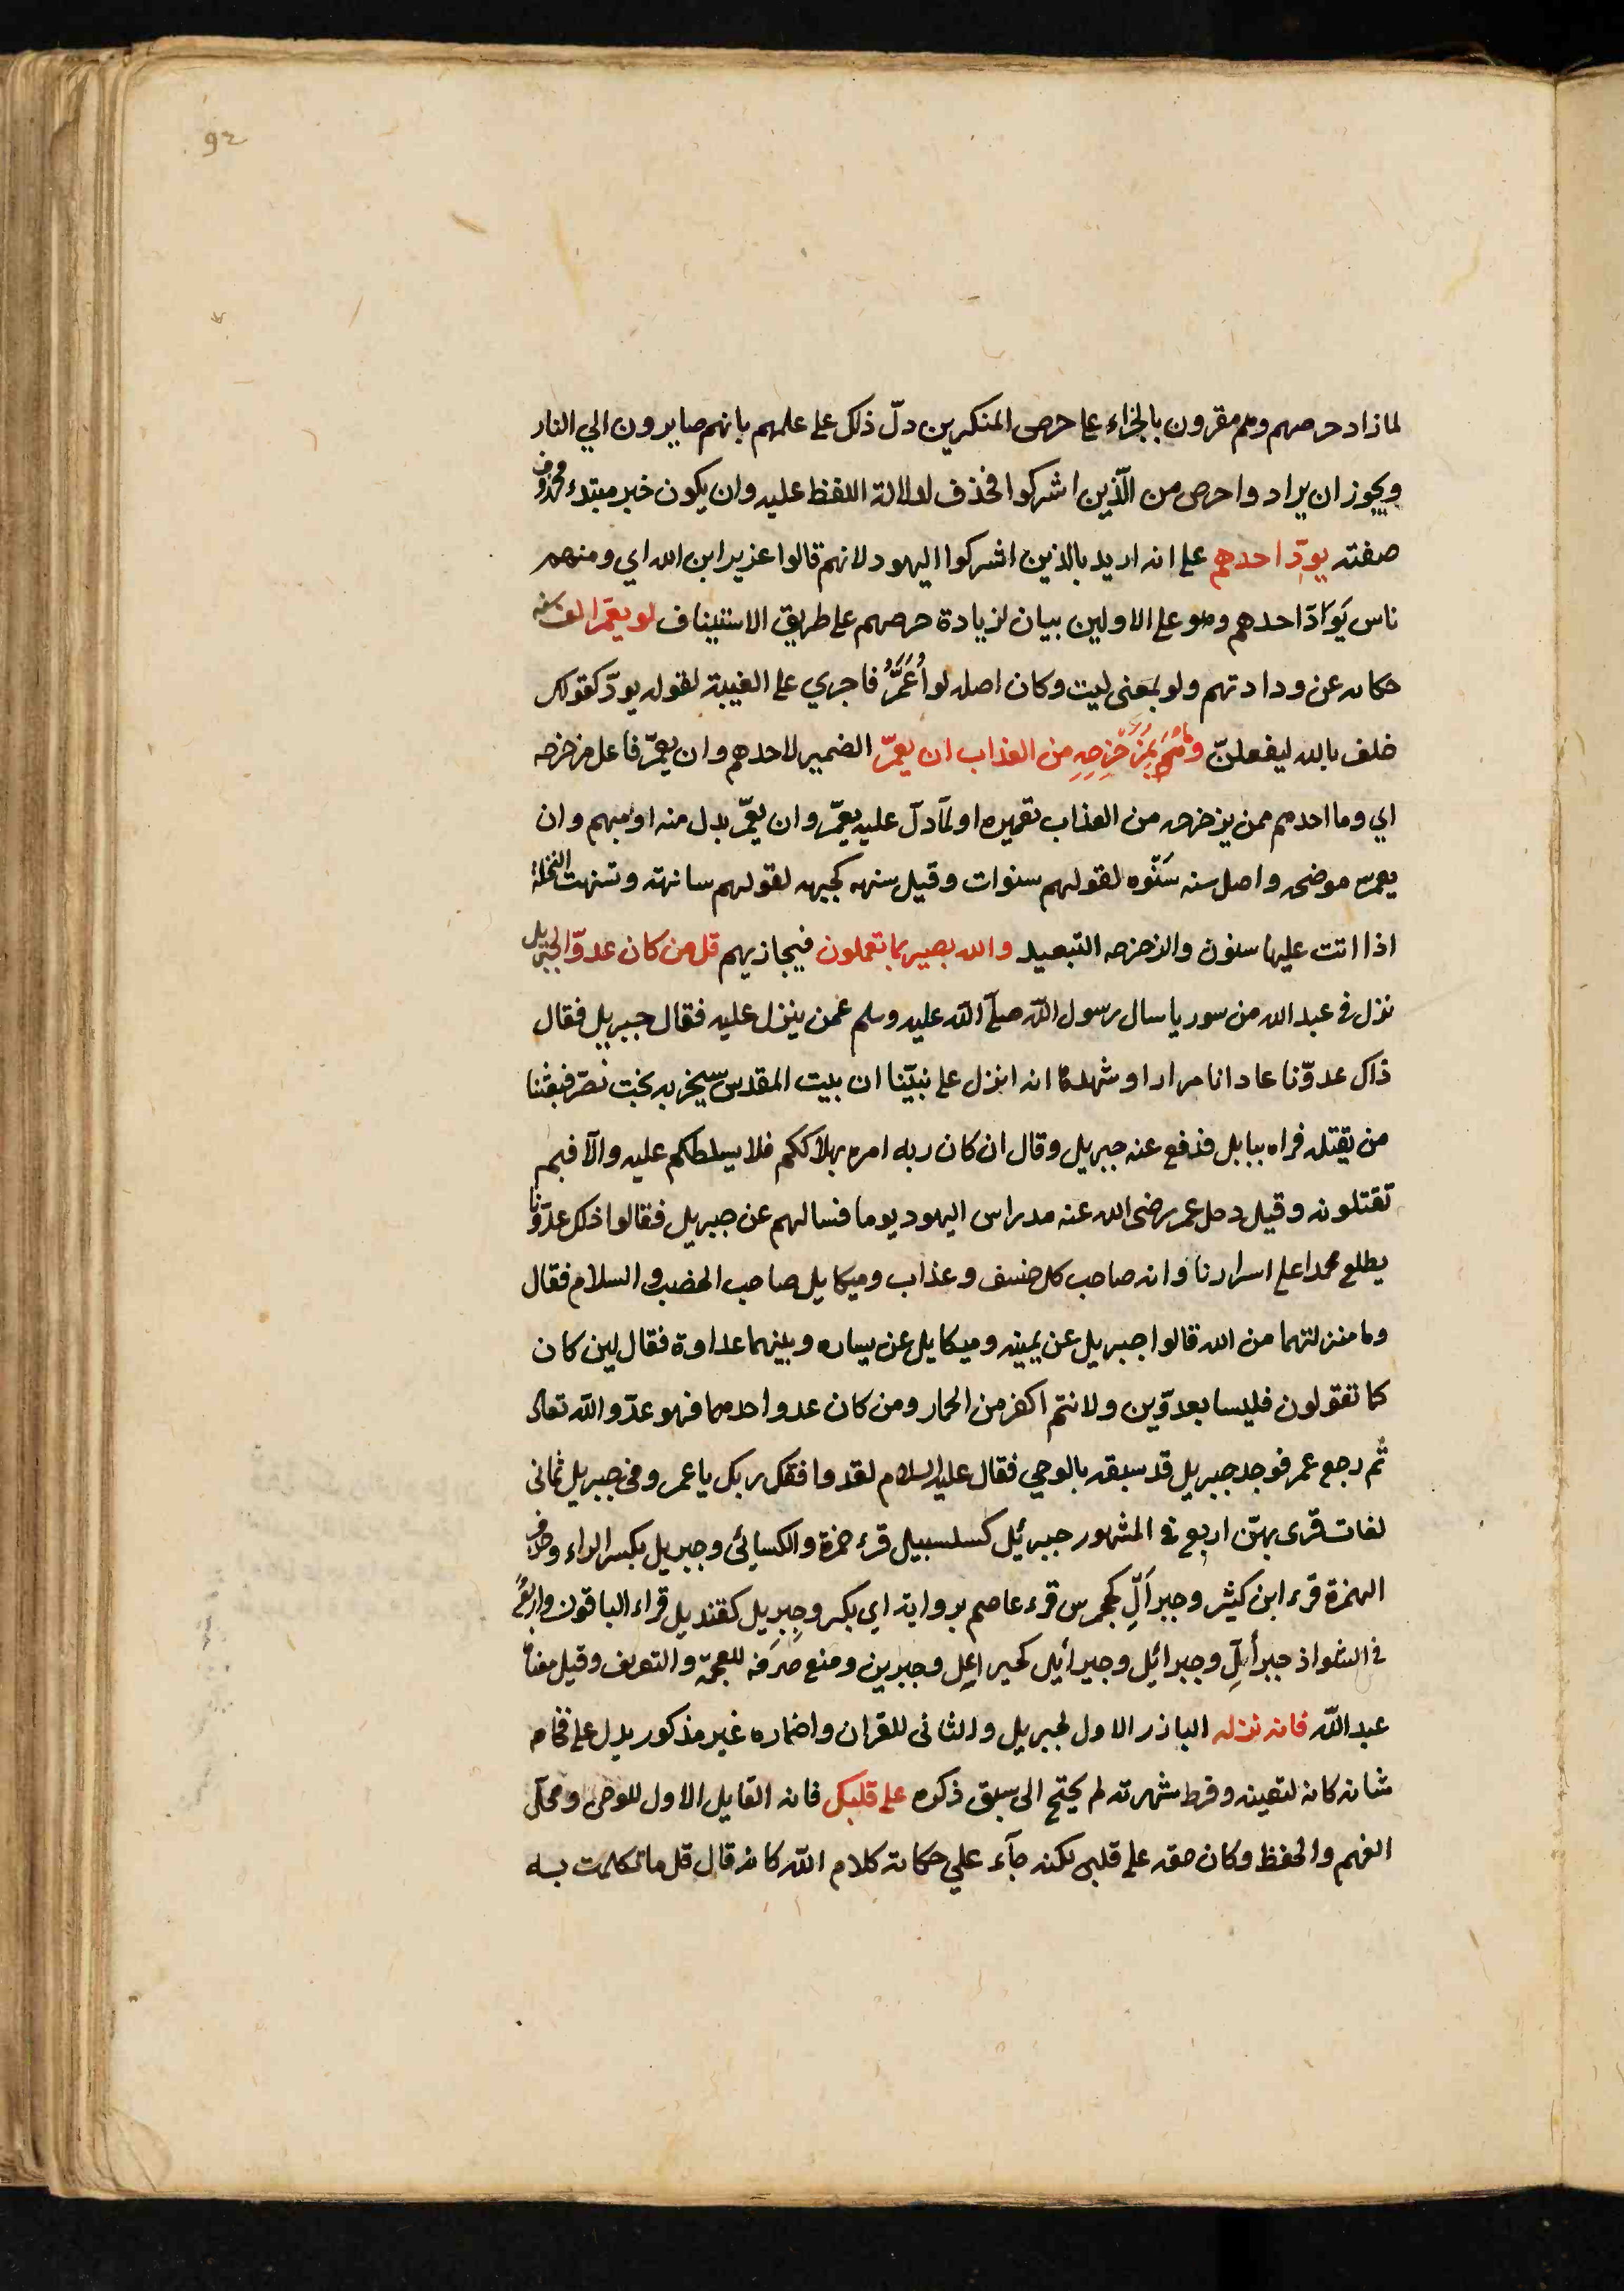 92
لما زاد حرصهم وهم مقرون بالجزاء على حرص المنكرين دلّ ذلك على علمهم بانهم صايرون الي النار
ويجوز ان يراد واحرص من الّذين اشركوا فحذف لدلالة اللفظ عليه وان يكون خبر مبتدء محذوف
صفته يودّ احدهم على انه اريد بالذين اشركوا اليهود لانهم قالوا عزير ابن الله اي ومنهم
ناس يَوادّ احدهم وهو على الاولين بيان لزيادة حرصهم على طريق الاستيناف لو يعمّر الف سنه
حكايه عن ودادتهم ولو بمعنى ليت وكان اصله لو اُعَمَّرُ فاجري على الغيبة لقوله يودّ كقولك
حلف بالله ليفعلنّ وما هم بمُزَحْزِحِهِ من العذاب ان يعمّر الضمير لاحدهم وان يعمّر فاعل مزحزحه
اي وما احدهم ممن يزحزحه من العذاب تعميره او لمّا دلّ عليه يعمّر وان يعمّر بدل منه او مبهم وان
يعمر موضحه واصل سنه سَنْوه لقولهم سنوات وقيل سنهه كجبهه لقولهم سانهته وتسنهت النخلة
اذا اتت عليها سنون والزحزحه التبعيد والله بصير بما تعملون فيجازيهم قل من كان عدوّا لجبريل
نزل في عبد الله من سوريا سال رسول الله صلّى الله عليه وسلم عمن ينزل عليه فقال جبريل فقال
ذاك عدوّنا عادانا مرارا وشهدها انه انزل على نبيّنا ان بيت المقدس سيخربه بخت نصّر فبعثنا
من يقتله فراه ببابل فدفع عنه جبريل وقال ان كان ربه امره بهلاككم فلا يسلطكم عليه والّا فبم
تقتلونه وقيل دخل عمر رضى الله عنه مدراس اليهود يوما فسالهم عن جبريل فقالوا ذلك عدوّنا
يطلع محمدا على اسرارنا وانه صاحب كل خسف وعذاب وميكايل صاحب الخصب والسلام فقال
وما منزلتهما من الله قالوا جبريل عن يمينه وميكايل عن يساره وبينهما عداوة فقال لين كان
كما تقولون فليسا بعدوّين ولانتم اكفر من الحمار ومن كان عدو احدهما فهو عدّو الله تعالى
ثم رجع عمر فوجد جبريل قد سبقه بالوحي فقال عليه السلام لقد وافقك ربك يا عمر وفى جبريل ثمانى
لغات قرى بهنّ اربع في المشهور جبرئيل كسلسبيل قرء حمزة والكسائى وجبريل بكسر الراء وحذف
الهمزة قرء ابن كثير وجبرألِ كجحمرس قرء عاصم برواية ابي بكر وجِبرِيل كقنديل قراء الباقون واربعٌ
في الشواذ جبرألِّ وجبرائل وجبرأيل كجبراعل وجبرين ومنع صرفه للعجمة والتعريف وقيل معناه
عبد الله فانه نزله البارز الاول لجبريل والثانى للقران واضماره غير مذكور يدل على فخامه
شانه كانه لتعينه وفرط شهرته لم يحتج الى سبق ذكره على قلبك فانه القابل الاول للوحى ومحلّ
الفهم والحفظ وكان حقه على قلبى لكنه جآء علي حكاية كلام الله كانه قال قل ما تكلمت به